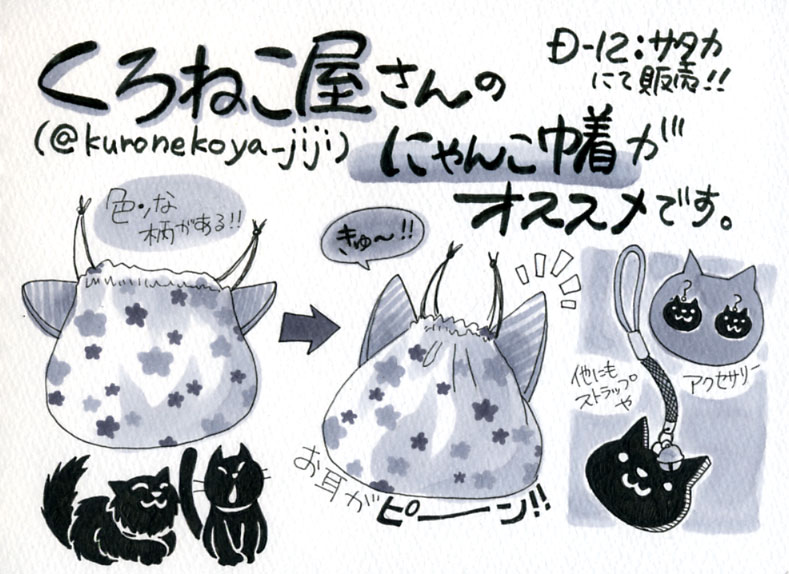 くろねこ屋さんの
(@kuronekoya-jiji)
にゃんこ巾着が
オススメです。
D-12:サタカ
にて販売!!
色々な
柄がある!!
きゅ〜!!
お耳が
ピーーン!!
他にも
ストラップ
や
アクセサリー
?
?